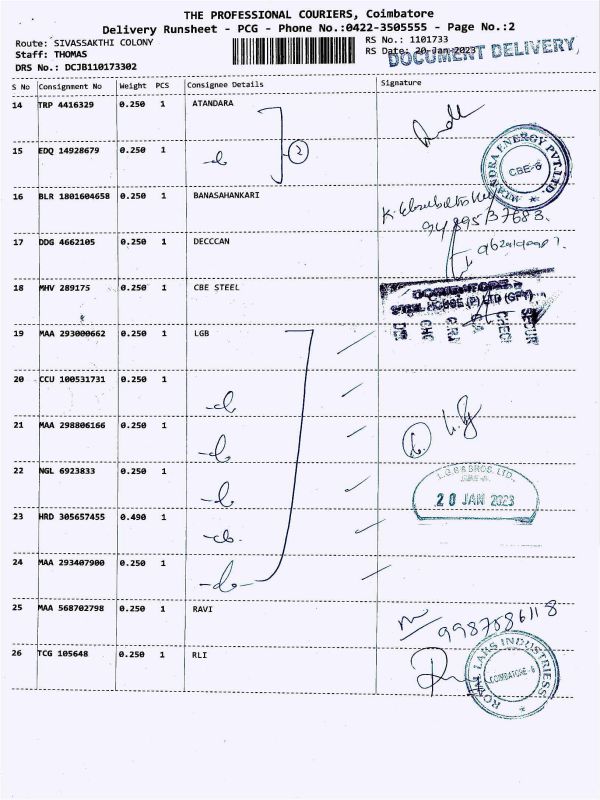 THE PROFESSIONAL COURIERS, Coimbatore
Delivery Runsheet - PCG - Phone No.:0422-3505555 - Page No.:2
Route: SIVASSAKTHI COLONY
Staff: THOMAS
DRS No.: DCJB110173302
RS No.: 1101733
RS Date: 20-Jan-2023
DOCUMENT DELIVERY
S No Consignment No Weight PCS Consignee Details Signature
14 TRP 4416329 0.250 1 ATANDARA
15 EDQ 14928679 0.250 1 -do- 2
ENERGY PVT.LTD. CBE-6
16 BLR 1801604658 0.250 1 BANASAHANKARI
9489537683
17 DDG 4662105 0.250 1 DECCCAN
18 MHV 289175 0.250 1 CBE STEEL
STEEL HOUSE (P) LTD
19 MAA 293000662 0.250 1 LGB
20 CCU 100531731 0.250 1 -do-
21 MAA 298806166 0.250 1 -do-
22 NGL 6923833 0.250 1 -do-
L.G.B & BROS. LTD.,
20 JAN 2023
23 HRD 305657455 0.490 1 -do-
24 MAA 293407900 0.250 1 -do-
25 MAA 568702798 0.250 1 RAVI
26 TCG 105648 0.250 1 RLI
INDUSTRIESS
COIMBATORE - 6